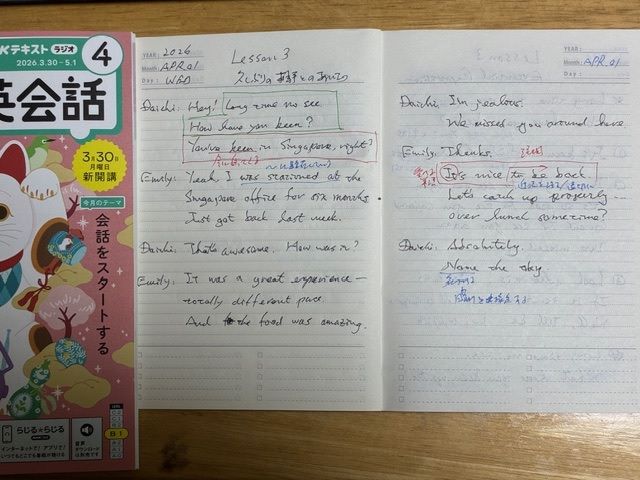 Kテキスト ラジオ
2026.3.30–5.1
4
英会話
3月30日
月曜日
新開講
今月のテーマ
会話をスタートする
らじる★らじる
インターネットで！アプリで！
いつでもどこでも番組が聴ける
音声
ダウンロード
は別売です
B1
YEAR: 2026
Month: APR. 01
Day: WED
Lesson 3
Daichi: Hey! Long time no see.
How have you been?
You've been in Singapore, right?
Emily: Yeah, I was stationed at the
Singapore office for six months.
Just got back last week.
Daichi: That's awesome. How was it?
Emily: It was a great experience—
totally different pace.
And the food was amazing.
YEAR:
Month: APR. 01
Day:
Daichi: I'm jealous.
We missed you around here
Emily: Thanks.
It's nice to be back.
Let's catch up properly—
over lunch sometime?
Daichi: Absolutely.
Name the day.